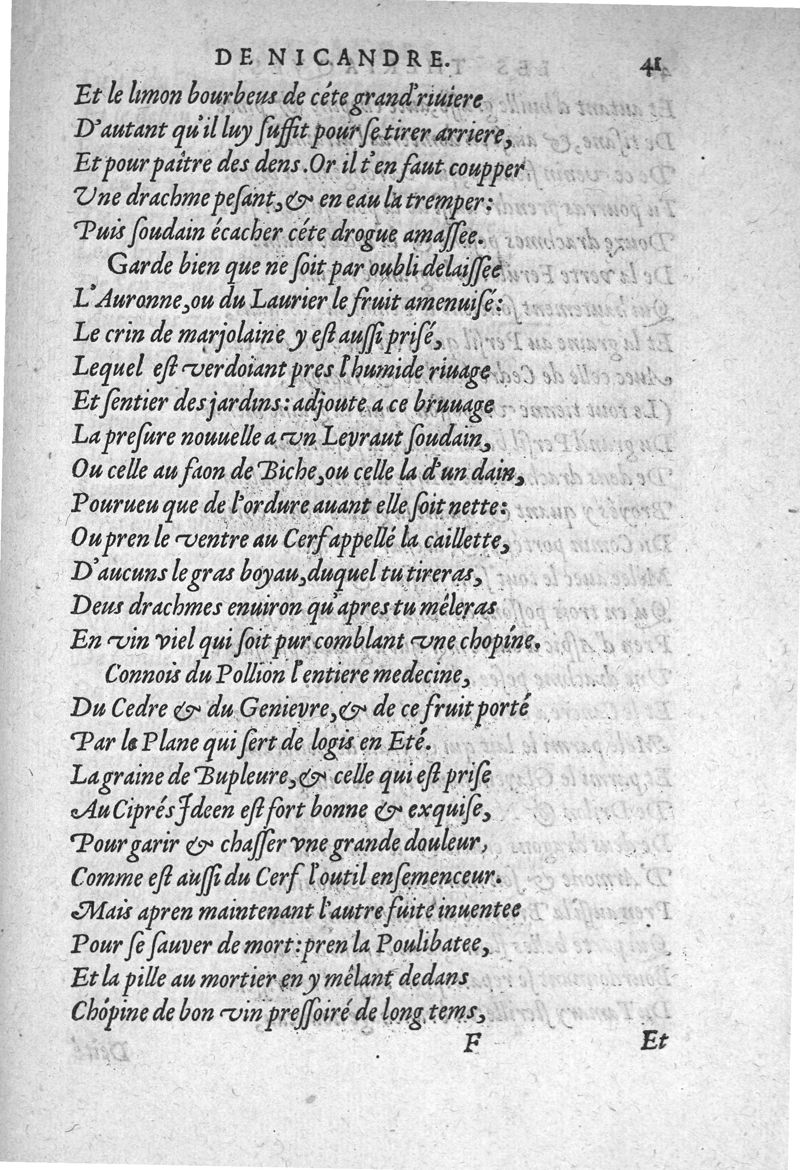 DE NICANDRE. 41
Et le limon bourbeus de céte grand'riuiere
D'autant qu'il luy ſuffit pour ſe tirer arriere,
Et pour paître des dens. Or il t'en faut coupper
Vne drachme peſant, & en eau la tremper:
Puis ſoudain écacher céte drogue amaſſee.
Garde bien que ne ſoit par oubli delaiſſee
L'Auronne, ou du Laurier le fruit amenuiſé:
Le crin de marjolaine y eſt auſſi priſé,
Lequel eſt verdoiant pres l'humide riuage
Et ſentier des jardins: adjoute a ce bruuage
La preſure nouuelle a vn Levraut ſoudain,
Ou celle au faon de Biche, ou celle la d'un dain,
Pourueu que de l'ordure auant elle ſoit nette:
Ou pren le ventre au Cerf appellé la caillette,
D'aucuns le gras boyau, duquel tu tireras,
Deus drachmes enuiron qu'apres tu mêleras
En vin viel qui ſoit pur comblant vne chopíne.
Connois du Pollion l'entiere medecine,
Du Cedre & du Genievre, & de ce fruit porté
Par le Plane qui ſert de logis en Eté.
La graine de Bupleure, & celle qui eſt priſe
Au Ciprés Jdeen eſt fort bonne & exquiſe,
Pour garir & chaſſer vne grande douleur,
Comme eſt auſſi du Cerf l'outil enſemenceur.
Mais apren maintenant l'autre fuite inuentee
Pour ſe ſauver de mort: pren la Poulibatee,
Et la pille au mortier en y mêlant dedans
Chópine de bon vin preſſoiré de long tems,
F Et